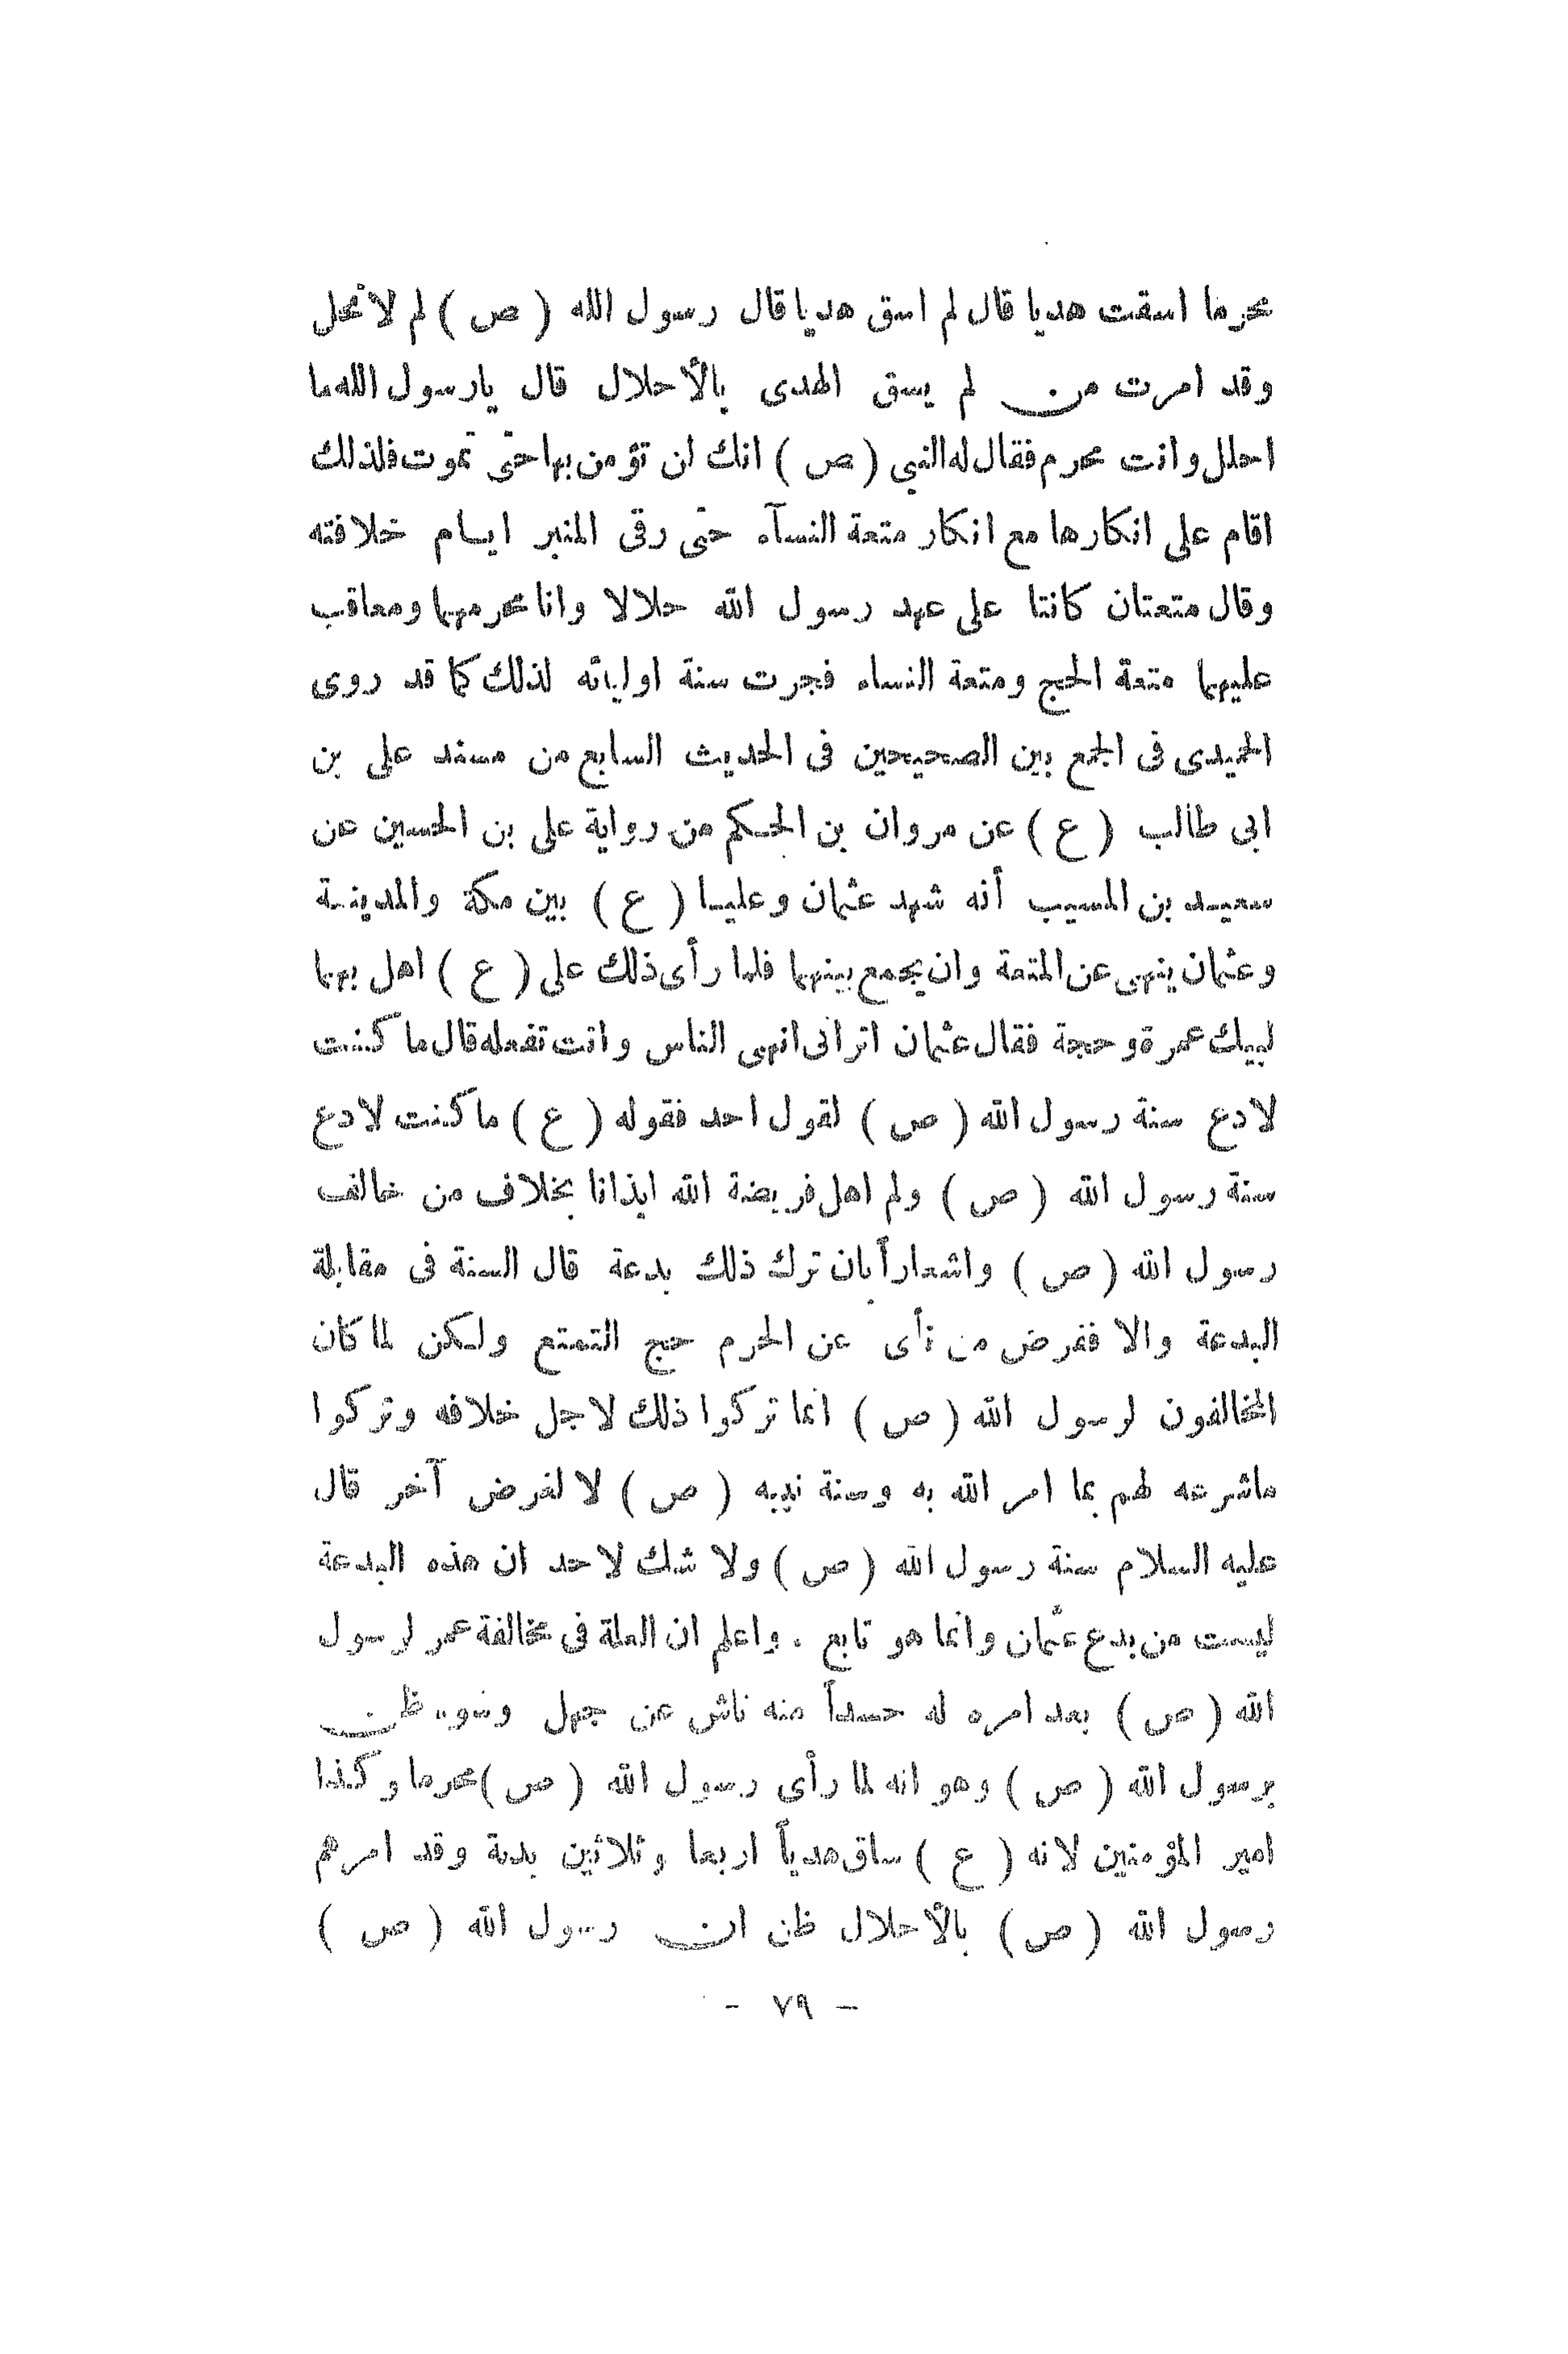 محرما اسقت هديا قال لم اسق هديا قال رسول الله ( ص ) لم لا تحل
وقد امرت من لم يسق الهدى بالأحلال قال يارسول الله ما
احلل وانت محرم فقال له النبي ( ص ) انك لن تؤمن بها حتى تموت فلذلك
اقام على انكارها مع انكار متعة النسآء حتى رقى المنبر ايام خلافته
وقال متعتان كانتا على عهد رسول الله حلالا وانا محرمهما ومعاقب
عليهما متعة الحج ومتعة النساء فجرت سنة اوليائه لذلك كما قد روى
الحميدى فى الجمع بين الصحيحين فى الحديث السابع من مسند على بن
ابى طالب ( ع ) عن مروان بن الحكم من رواية على بن الحسين عن
سعيد بن المسيب أنه شهد عثمان وعليا ( ع ) بين مكة والمدينة
وعثمان ينهى عن المتعة وان يجمع بينهما فلما رأى ذلك على ( ع ) اهل بهما
لبيك عمرة وحجة فقال عثمان اترانى انهى الناس وانت تفعله قال ما كنت
لادع سنة رسول الله ( ص ) لقول احد فقوله ( ع ) ما كنت لادع
سنة رسول الله ( ص ) ولم اهل فريضة الله ايذانا بخلاف من خالف
رسول الله ( ص ) واشعاراً بان ترك ذلك بدعة قال السنة فى مقابلة
البدعة والا ففرض من نأى عن الحرم حج التمتع ولكن لما كان
المخالفون لرسول الله ( ص ) انما تركوا ذلك لاجل خلافه وتركوا
ماشرعه لهم بما امر الله به وسنة نبيه ( ص ) لا لغرض آخر قال
عليه السلام سنة رسول الله ( ص ) ولا شك لاحد ان هذه البدعة
ليست من بدع عثمان وانما هو تابع . واعلم ان العلة فى مخالفة عمر لرسول
الله ( ص ) بعد امره له حسداً منه ناش عن جهل وسوء ظن
برسول الله ( ص ) وهو انه لما رأى رسول الله ( ص ) محرما وكذا
امير المؤمنين لانه ( ع ) ساق هدياً اربعا وثلاثين بدنة وقد امرهم
رسول الله ( ص ) بالأحلال ظن ان رسول الله ( ص )
- ٧٩ -